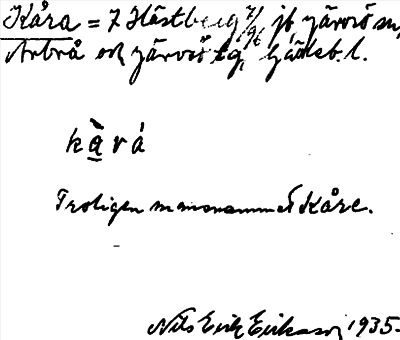 Kåra = 7 Hästberg 7/96 jb, Järvsö sn,
Arbrå och Järvsö tg, Gävleb. l.
kàrá
Troligen mansnamnet Kåre.
Nils Erik Eriksson 1935.